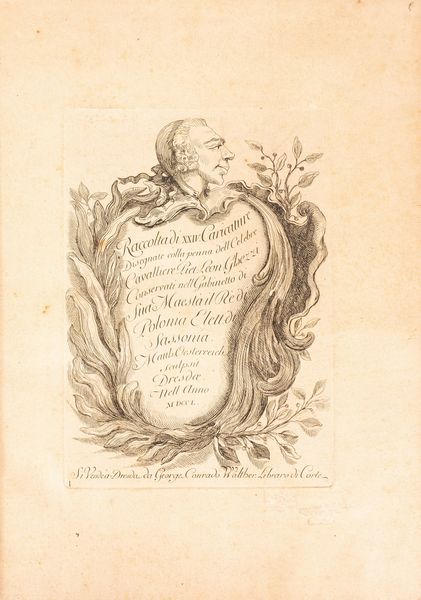 Raccolta di XXIV Caricature
Disegnate colla penna dell Celebre
Cavalliere Piet. Leon Ghezzi
Conservate nell Gabinetto di
Sua Maestà il Rè di
Polonia Elett. di
Sassonia
Matth. Oesterreich
sculpsit
Dresdæ
Nell Anno
MDCCL
Si Vende à Dresda da George Conrado Walther Libraro di Corte
1